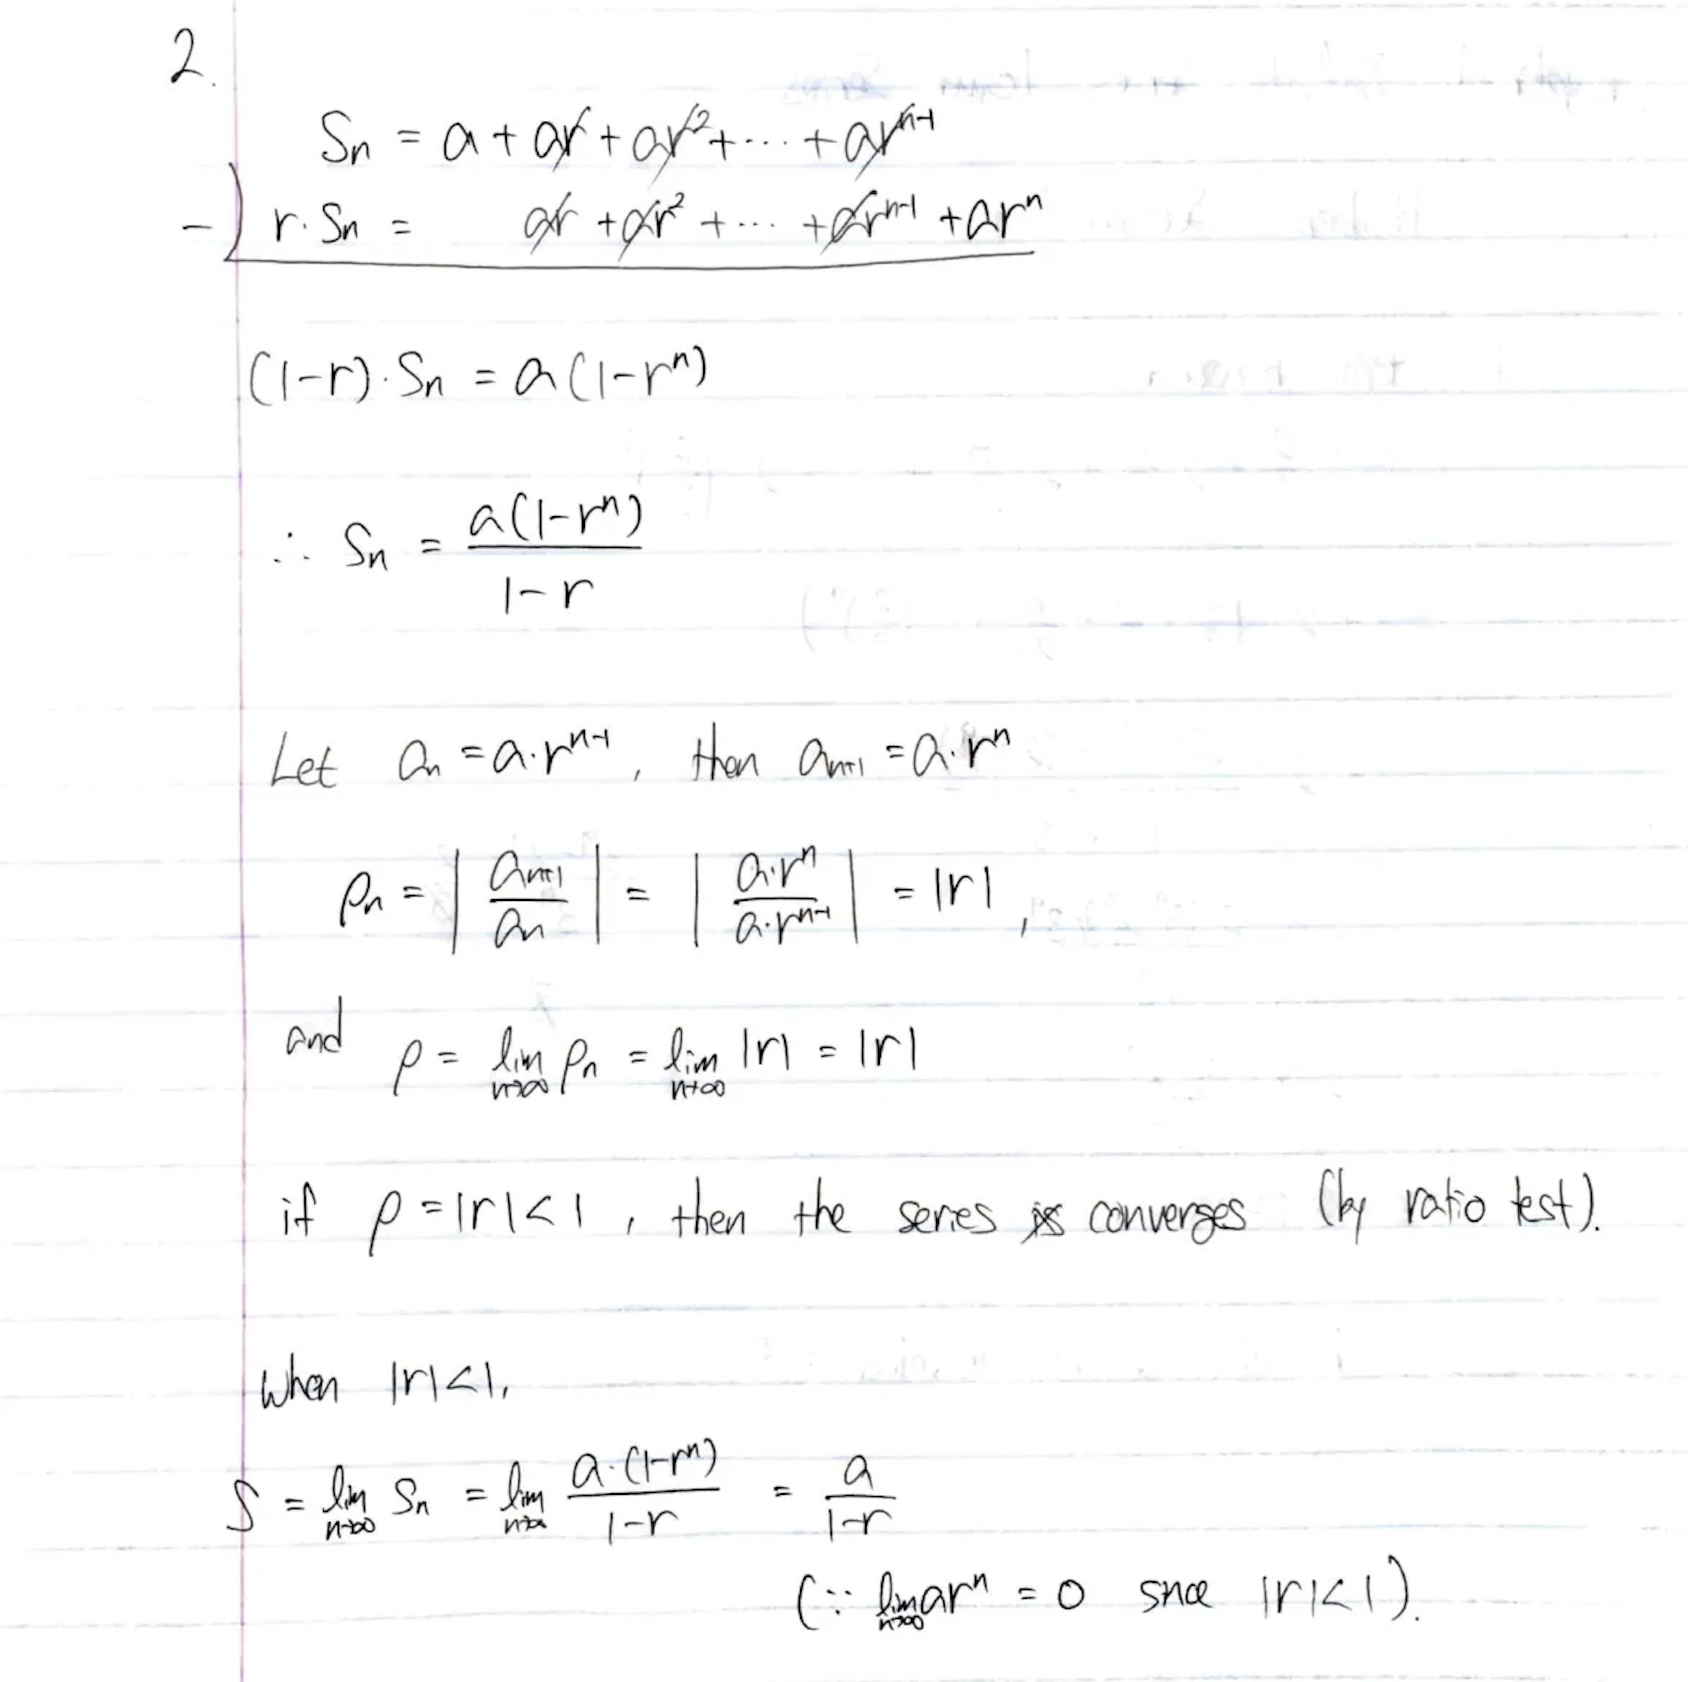 2.
Sn = a + ar + ar² + ... + arⁿ⁻¹
-) r·Sn = ar + ar² + ... + arⁿ⁻¹ + arⁿ
(1-r)·Sn = a(1-rⁿ)
∴ Sn = a(1-rⁿ) / 1-r
Let an = a·rⁿ⁻¹, then an+1 = a·rⁿ
ρn = | an+1 / an | = | a·rⁿ / a·rⁿ⁻¹ | = |r|,
and ρ = lim n→∞ ρn = lim n→∞ |r| = |r|
if ρ = |r| < 1, then the series is converges (by ratio test).
when |r| < 1,
S = lim n→∞ Sn = lim n→∞ a·(1-rⁿ) / 1-r = a / 1-r
(∵ lim n→∞ arⁿ = 0 snce |r| < 1).